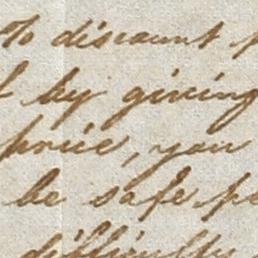 To discount
by giving
price, you
be safe pe
difficulty